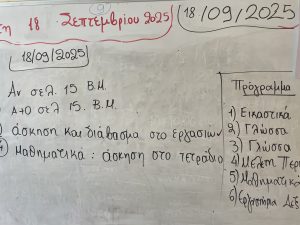 τη 18 Σεπτεμβρίου 2025
18/09/2025
18/09/2025
Αν σελ. 15 Β.Μ.
Α+Ο σελ 15. Β.Μ.
άσκηση και διάβασμα στο εργασιών
Μαθηματικά : άσκηση στο τετράδιο
Πρόγραμμα
1) Εικαστικά
2) Γλώσσα
3) Γλώσσα
4) Μελέτη Περι
5) Μαθηματικά
6) Εργαστήρια Δεξ